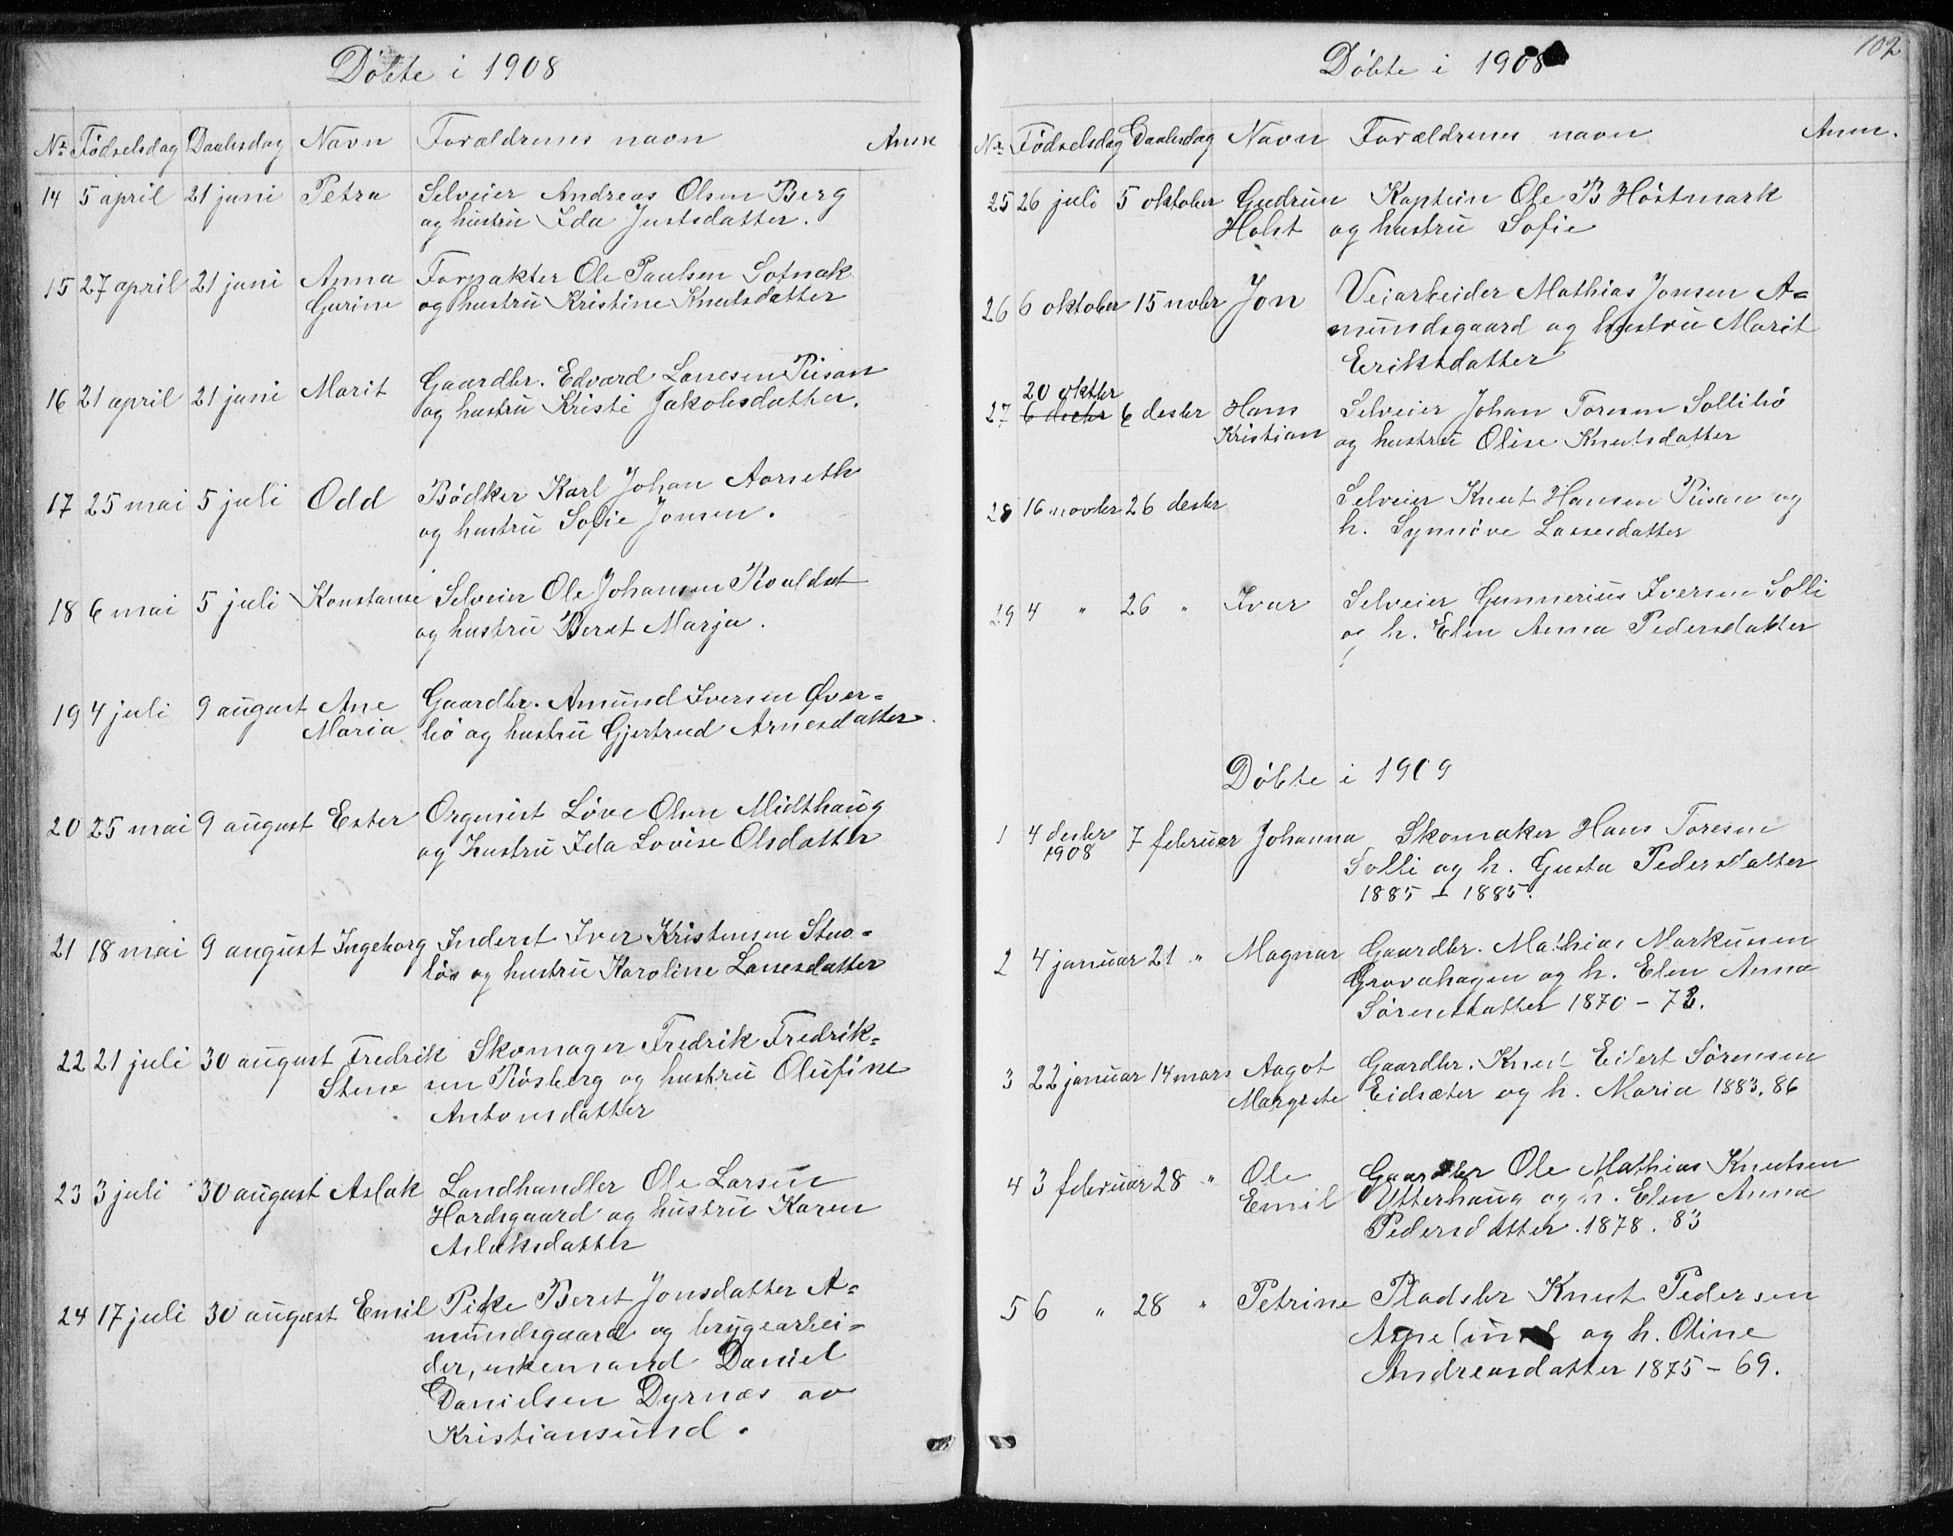 Döbte i 1908
Nr. Födselsdag Daabsdag Navn Forældrenes navn Anm
14 5 april 21 juni Petra Selveier Andreas Olsen Berg
og hustru Ida Justsdatter.
15 27 april 21 juni Anna Forpakter Ole Paulsen Sotnak
Gurine og hustru Kristine Knutsdatter
16 21 april 21 juni Marit Gaardbr. Edvard Larsen Risan
og hustru Kristi Jakobsdatter.
17 25 mai 5 juli Odd Bödker Karl Johan Aarseth
og hustru Sofie Jonsen.
18 6 mai 5 juli Konstanse Selveier Ole Johansen Roaldset
og hustru Beret Marja.
19 4 juli 9 august Ane Gaardbr. Amund Iversen Øver=
Maria liö og hustru Gjertrud Arnesdatter.
20 25 mai 9 august Ester Organist Löve Olsen Midthaug
og hustru Ida Lovise Olsdatter
21 18 mai 9 august Ingeborg Inderst Iver Kristensen Sten=
lös og hustru Karoline Larsesdatter
22 21 juli 30 august Fredrik Skomager Fredrik Fredrik=
Stene sen Rösberg og hustru Olufine
Antonsdatter
23 3 juli 30 august Aslak Landhandler Ole Larsen
Hordsgaard og hustru Karen
Aslaksdatter
24 17 juli 30 august Emil Pike Beret Jonsdatter A=
mundsgaard og brygearbei=
der, enkemand Daniel
Danielsen Dyrnæs av
Kristiansund.
102
Döbte i 1908
Nr. Födselsdag Daabsdag Navn Forældrenes navn Anm.
25 26 juli 5 oktober Gudrun Kaptein Ole B Höstmark
Holst og hustru Sofie
26 6 oktober 15 novbr Jon Veiarbeider Mathias Jonsen A=
mundsgaard og hustru Marit
Eeriksdatter
20 oktbr
27 6 desbr 6 desbr Hans Selveier Johan Toresen Solliliö
Kristian og hustru Olise Knutsdatter
28 16 novbr 26 desbr Selveier Knut Hansen Risan og
h. Synnöve Lassesdatter
29 4 " 26 " Ivar Selveier Gunnerius Iversen Solli
og h. Elen Anna Pedersdatter
Döbte i 1909
1 4 desbr 7 februar Johanna Skomaker Hans Toresen
1908 Solli og h. Gusta Pedersdatter
1885 – 1885.
2 4 januar 21 " Magnar Gaardbr. Mathias Markusen
Gravahagen og h. Elen Anna
Sörensdatter 1870 – 72.
3 22 januar 14 mars Aagot Gaardbr. Knut Eidert Sörensen
Margrete Eidsæter og h. Maria 1883. 86
4 3 februar 28 " Ole Gaardbr Ole Mathias Knutsen
Emil Ytterhaug og h. Elen Anna
Pedersdatter. 1878. 83
5 6 " 28 " Petrine Pladsbr Knut Pedersen
og h. Oline
Andreasdatter 1875 – 69.